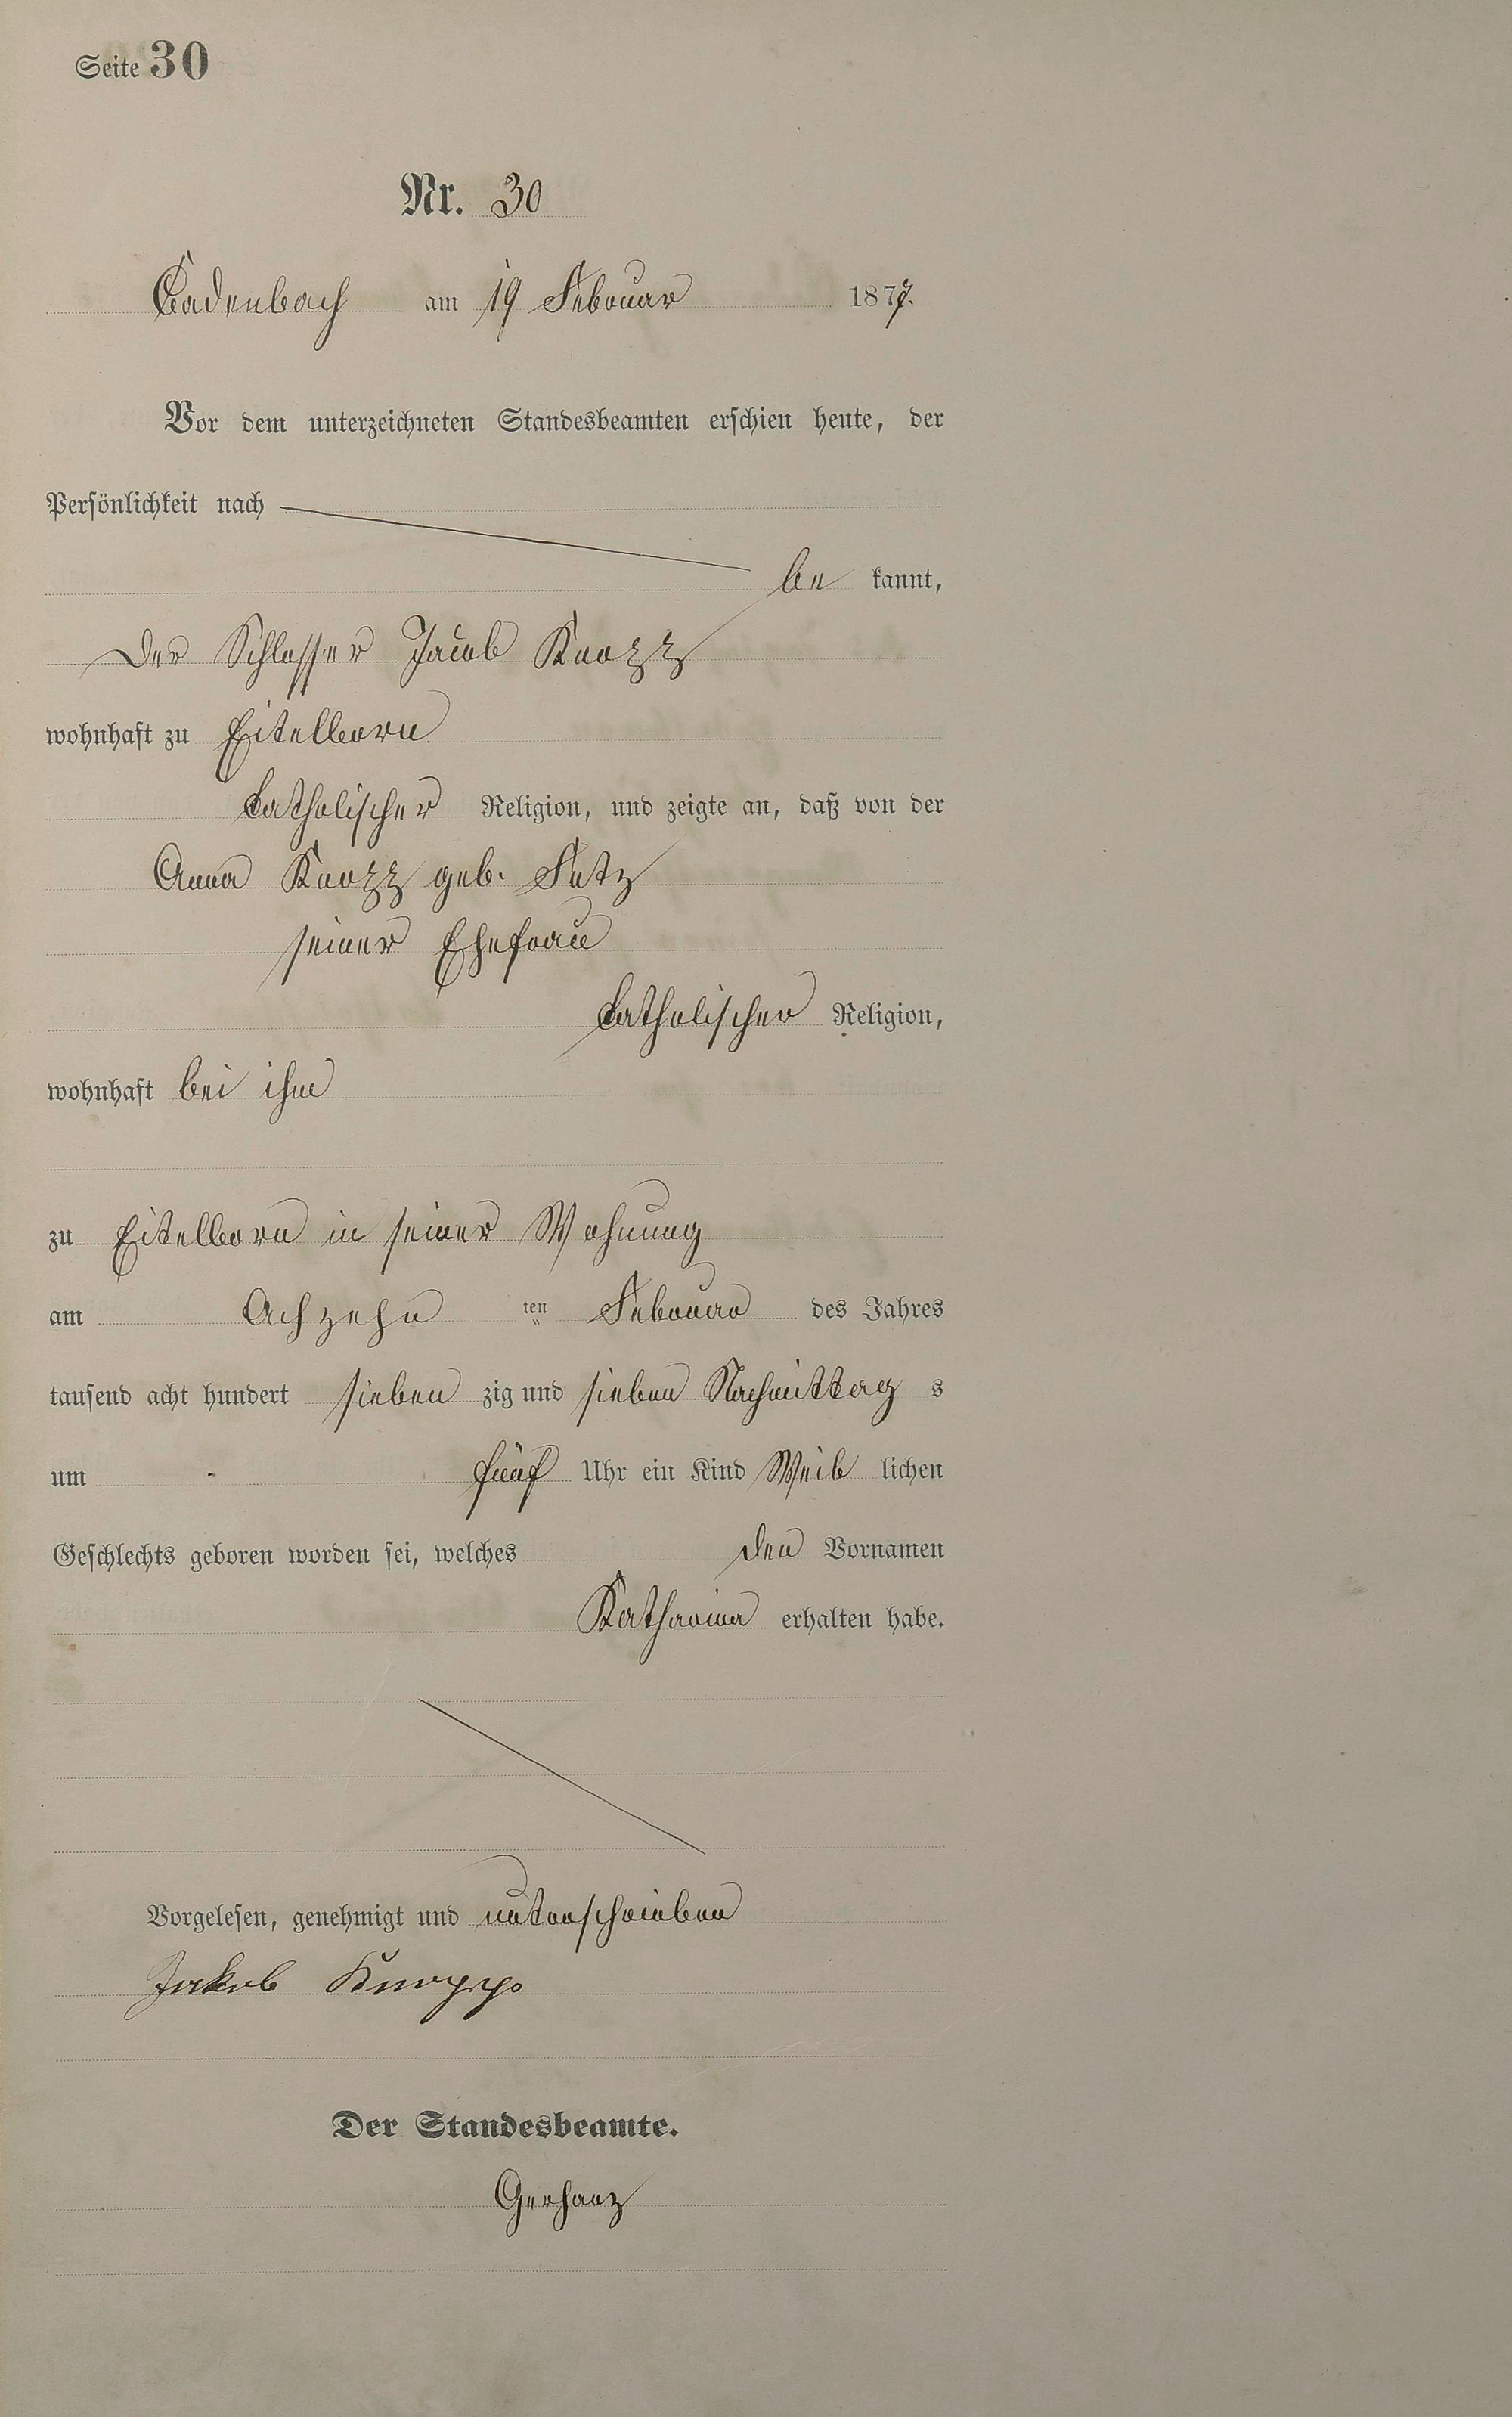 Seite 30
Nr. 30
Cadenbach am 19 Februar 1877.
Vor dem unterzeichneten Standesbeamten erschien heute, der
Persönlichkeit nach
be kannt,
Der Schlosser Jacob Knopp
wohnhaft zu Eitelborn
Catholischer Religion, und zeigte an, daß von der
Anna Knopp geb.
seiner Ehefrau
Catholischer Religion,
wohnhaft bei ihm
zu Eitelborn in seiner Wohnung
am Achzehn ten Februar des Jahres
tausend acht hundert sieben zig und sieben Nachmittag s
um fünf Uhr ein Kind Weib lichen
Geschlechts geboren worden sei, welches den Vornamen
Katharina erhalten habe.
Vorgelesen, genehmigt und unterschrieben
Jakob Knopp
Der Standesbeamte.
Gerharz